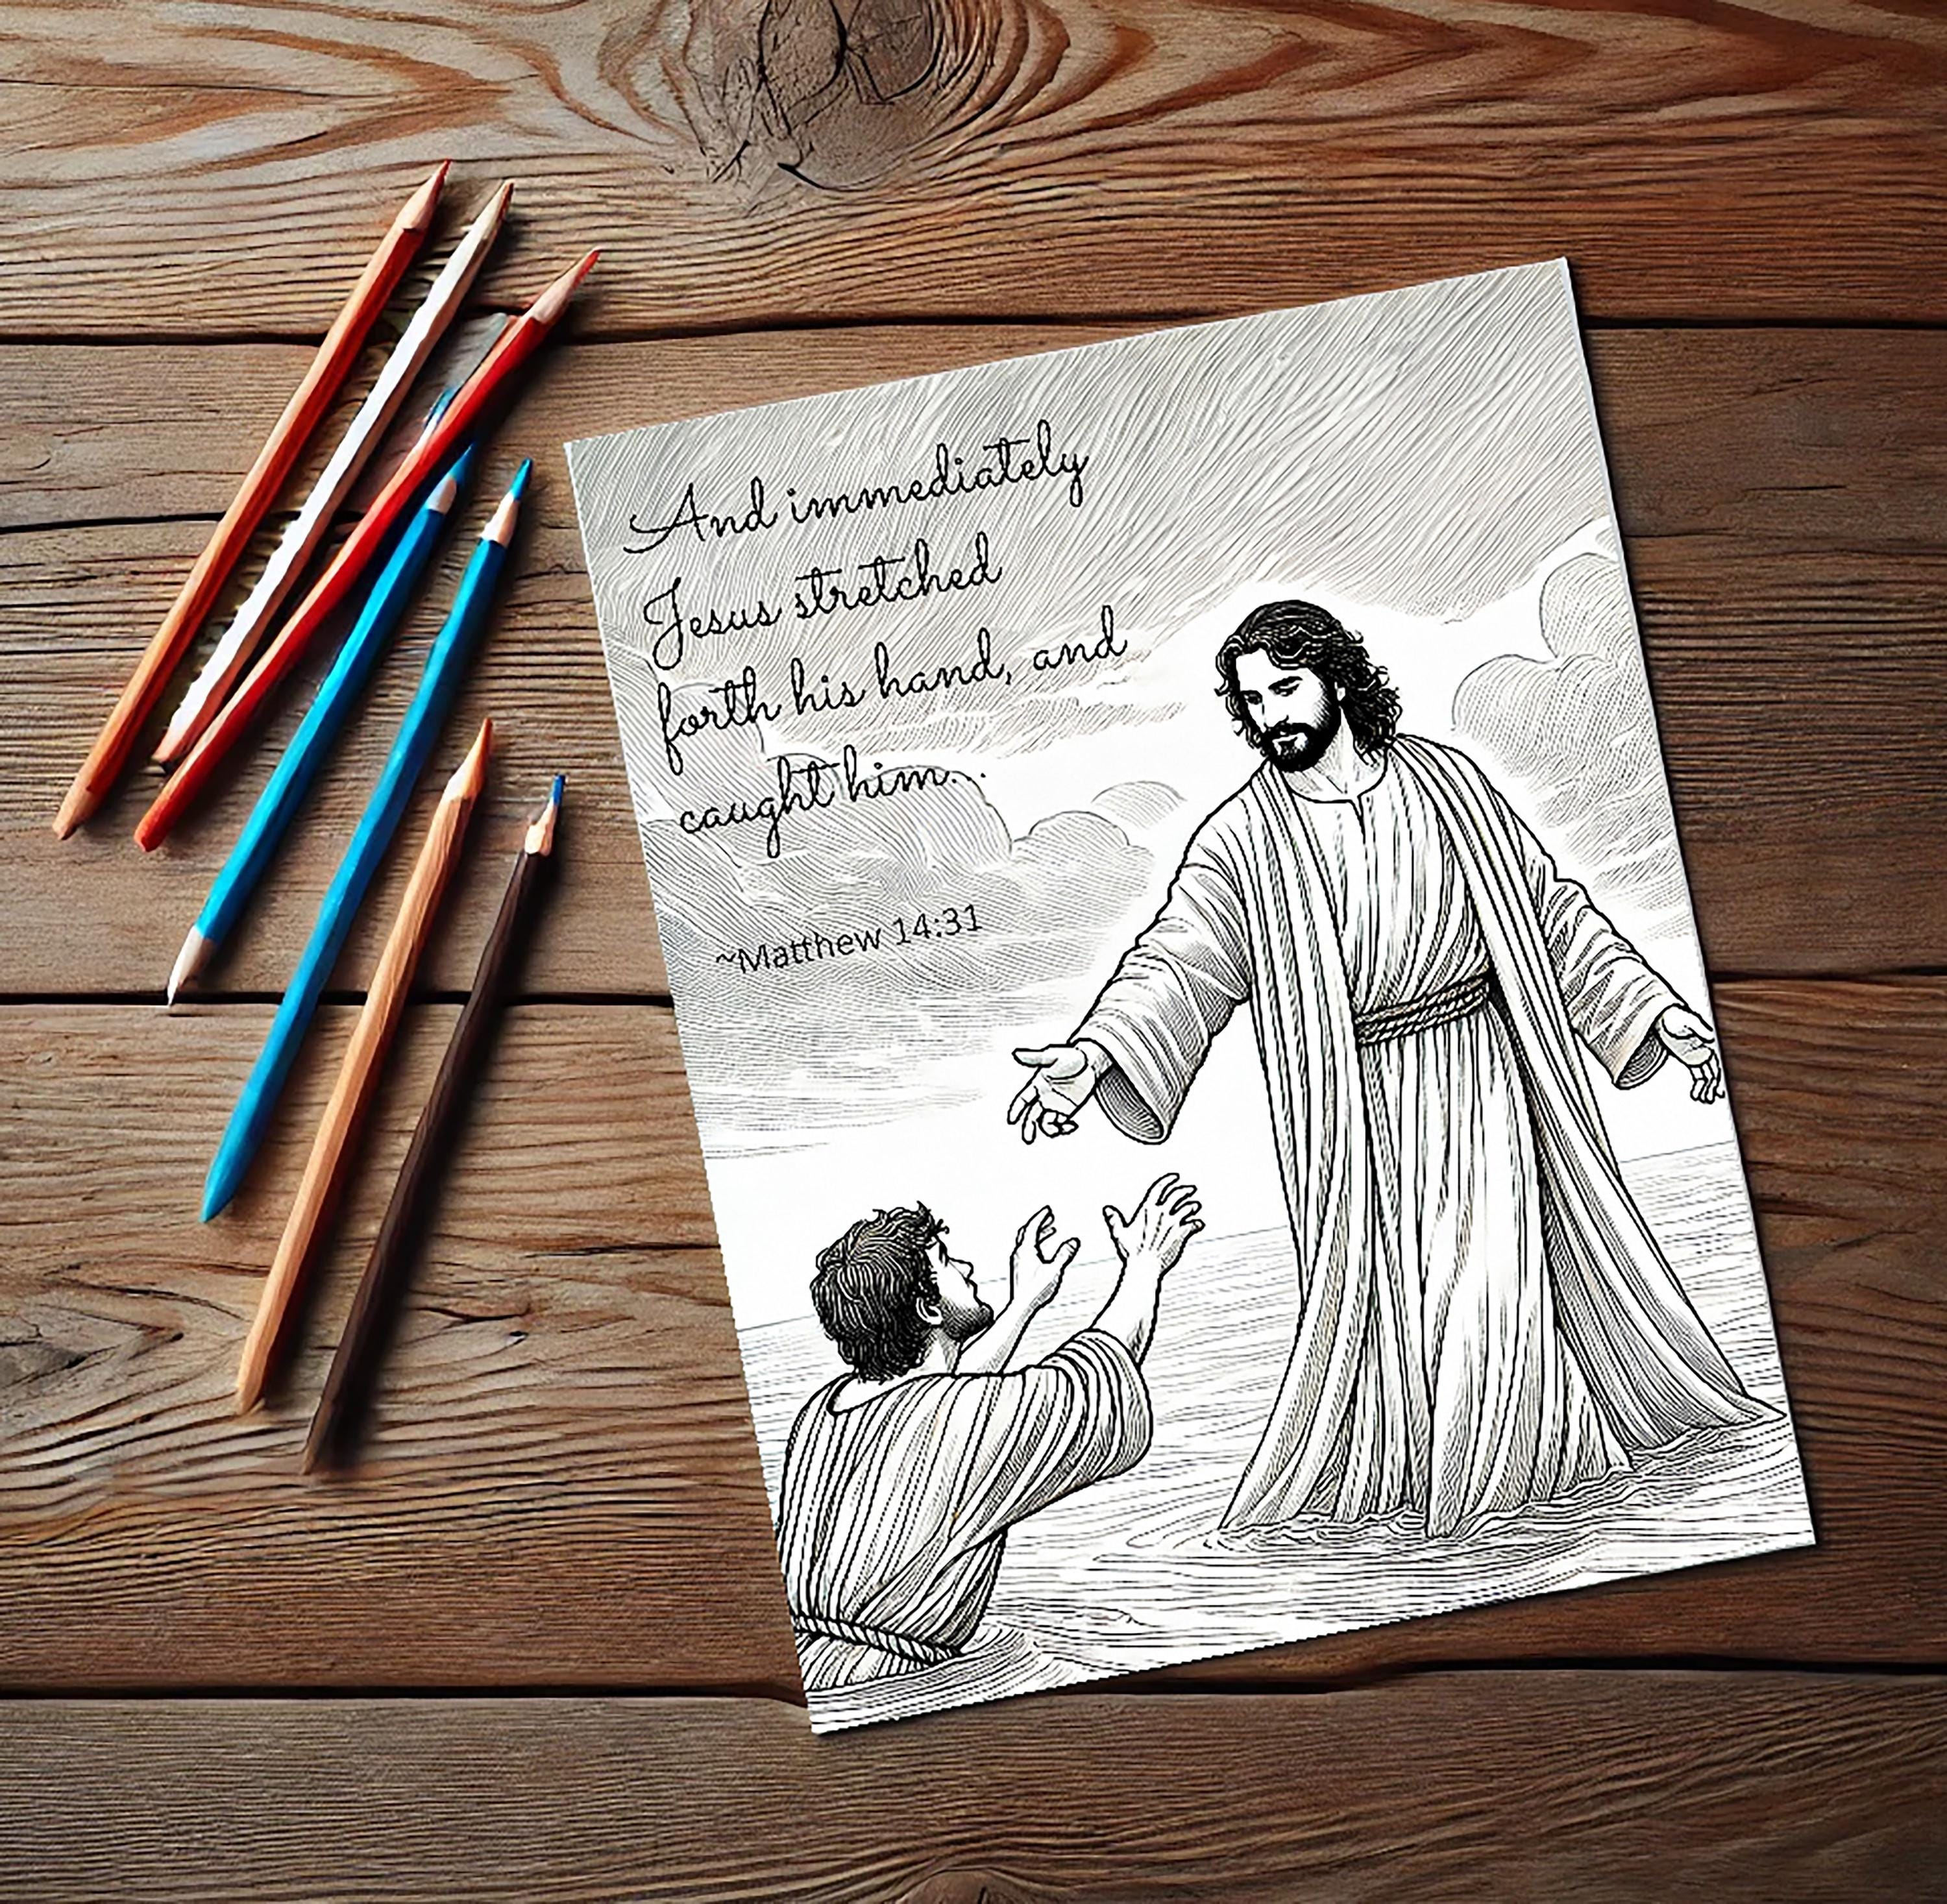 And immediately
Jesus stretched
forth his hand, and
caught him...
~Matthew 14:31